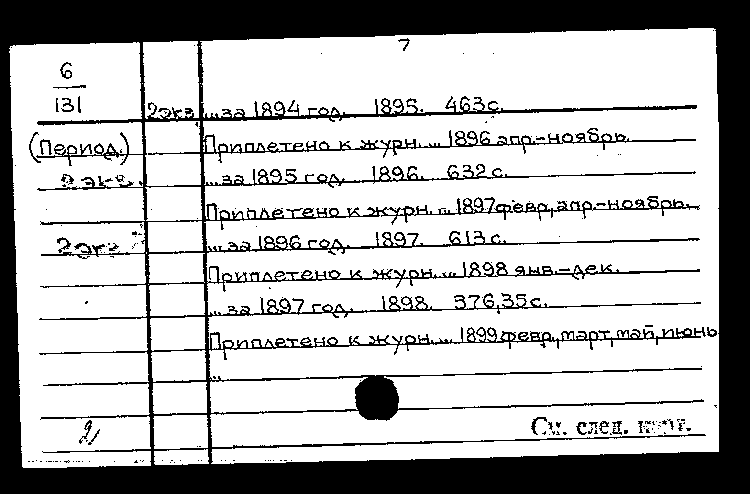 7
6
131
2экз. ...за 1894 год. 1895. 463 с.
(Период.) Приплетено к журн. ... 1896 апр.-ноябрь.
2 экз. ...за 1895 год. 1896. 632 с.
Приплетено к журн. ... 1897 февр., апр.-ноябрь.
2экз. ...за 1896 год. 1897. 613 с.
Приплетено к журн. ... 1898 янв.-дек.
...за 1897 год. 1898. 576,35 с.
Приплетено к журн. ... 1899 февр., март, май, июнь
...
2/
См. след. карт.